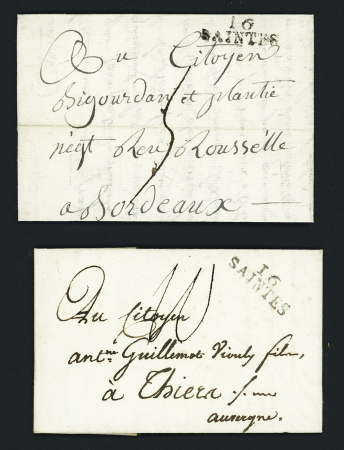 16
SAINTES
Au Citoyen
Bigourdan et plantié
négt Rue Rousselle
5
a Bordeaux
16
SAINTES
Au Citoyen
antne Guillemot fils,
à Thiers
auvergne.